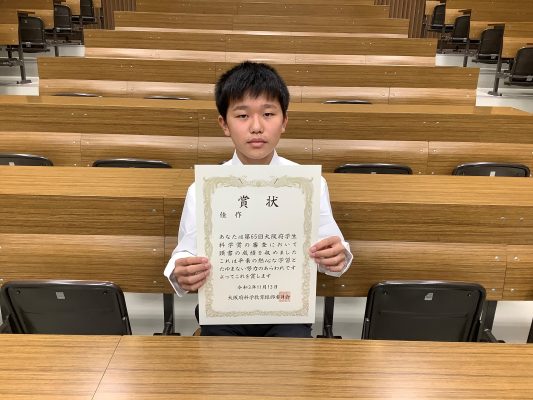 賞状
佳作
あなたは第65回大阪府学生
科学賞の審査において
頭書の成績を収めました
これは平素の熱心な学習と
たゆまない努力のあらわれです
よってこれを賞します
令和3年11月13日
大阪府科学教育振興委員会